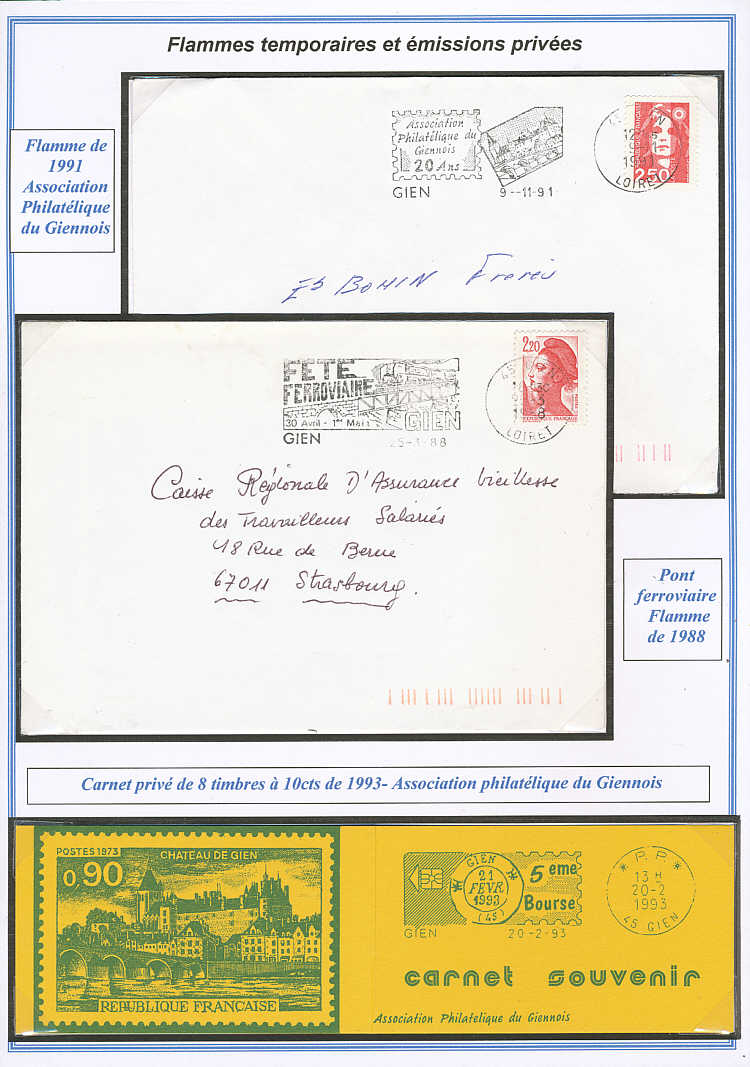 Flammes temporaires et émissions privées
Flamme de
1991
Association
Philatélique
du Giennois
Association
Philatélique du
Giennois
20 Ans
GIEN
9--11-91
1991
LOIRET
2,50
Ets BOHIN Frères
FETE
FERROVIAIRE
30 Avril - 1er Mai
GIEN
GIEN
25-3-88
2,20
REPUBLIQUE FRANÇAISE
LOIRET
Caisse Régionale D'Assurance Vieillesse
des Travailleurs Salariés
48 Rue de Berne
67011 Strasbourg.
Pont
ferroviaire
Flamme
de 1988
Carnet privé de 8 timbres à 10cts de 1993- Association philatélique du Giennois
POSTES 1973
CHATEAU DE GIEN
0,90
REPUBLIQUE FRANÇAISE
GIEN
21
FEVR
1993
(45)
5 eme
Bourse
GIEN
20-2-93
* P.P. *
13 H
20-2
1993
45 GIEN
carnet souvenir
Association Philatélique du Giennois